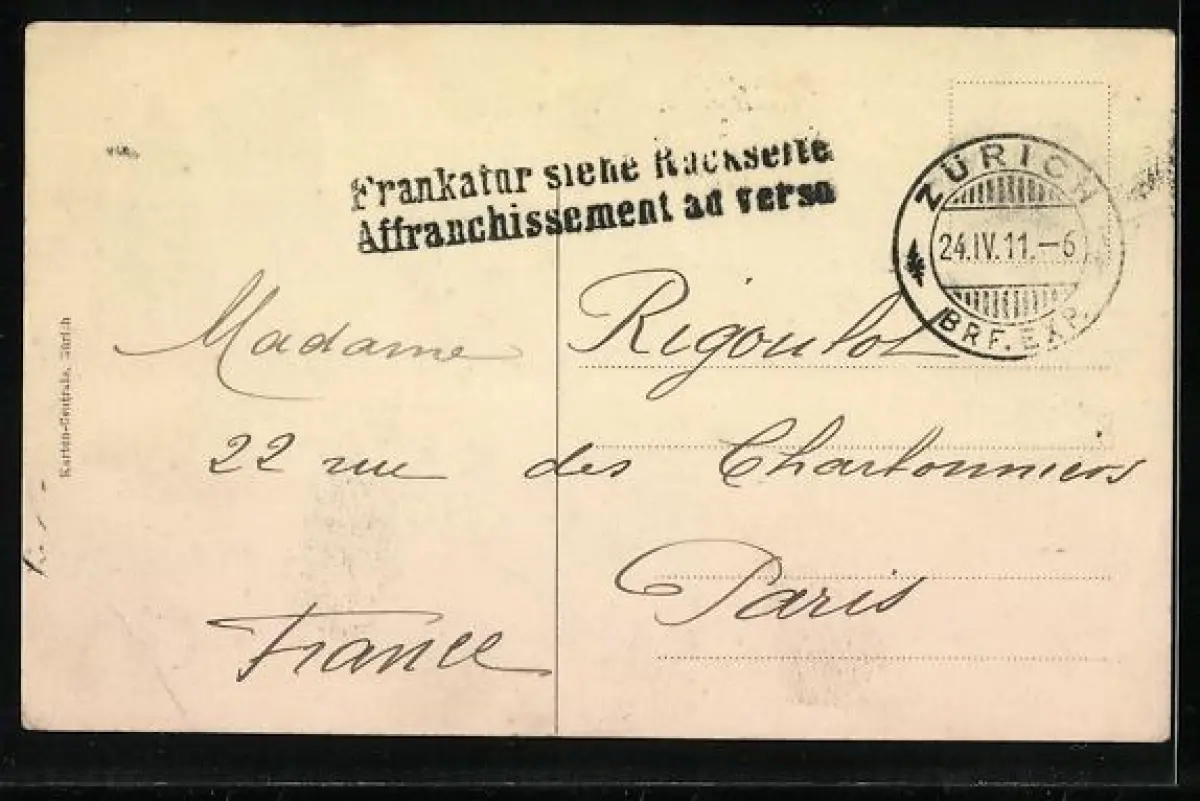 Frankatur siehe Rückseite
Affranchissement au verso
ZÜRICH
24.IV.11.–6
BRF. EXP.
Madame Rigoulot
22 rue des Charbonniers
Paris
France
Karten-Centrale, Zürich